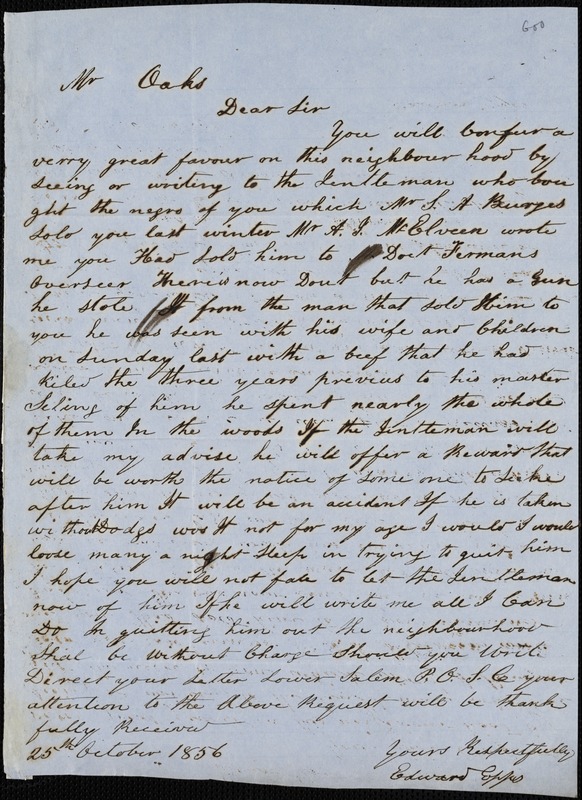 600
Mr Oaks
Dear Sir
You will Confur a
verry great favour on this neighbour hood by
Seeing or writing to the Jentleman who bou
ght the negro of you which Mr J. A Burges
Sold you last winter Mr A. J. McElveen wrote
me you Had Sold him to Doct Fermans
Overseer Heer is now Dout but he has a Gun
he stole It from the man that sold Him to
you he was seen with his wife and Children
on Sunday last with a beef that he had
kiled the three years previus to his master
Seling of him he spent nearly the whole
of them In the woods If the Jentleman will
take my advise he will offer a Reward that
will be worth the notice of Some one to Seeke
after him It will be an accident If he is taken
without Dodgs was It not for my age I would I would
loose many a night Sleep in trying to guit him
I hope you will not fale to let the Jentleman
now of him If he will write me all I Can
Do In guitting him out the neighbourhood
Shal be Without Charge Should you Write
Direct your Letter Lower Salem P.O. S.C. your
attention to the Above Request will be thank
fully Received
25th October 1856
Yours Respectfully
Edward Epps